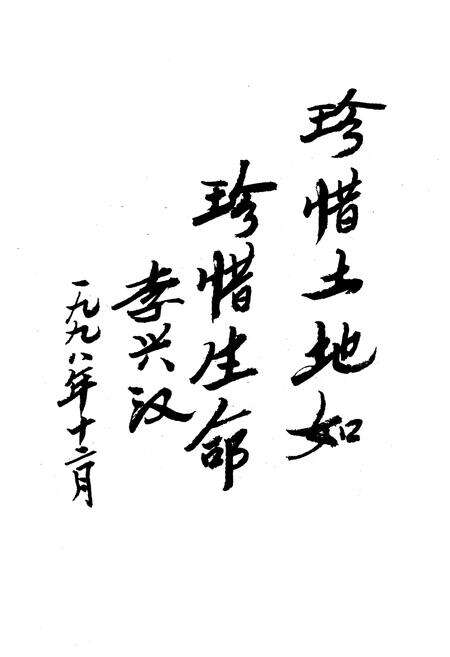 珍惜土地如
珍惜生命
李兴汉
一九九八年十二月